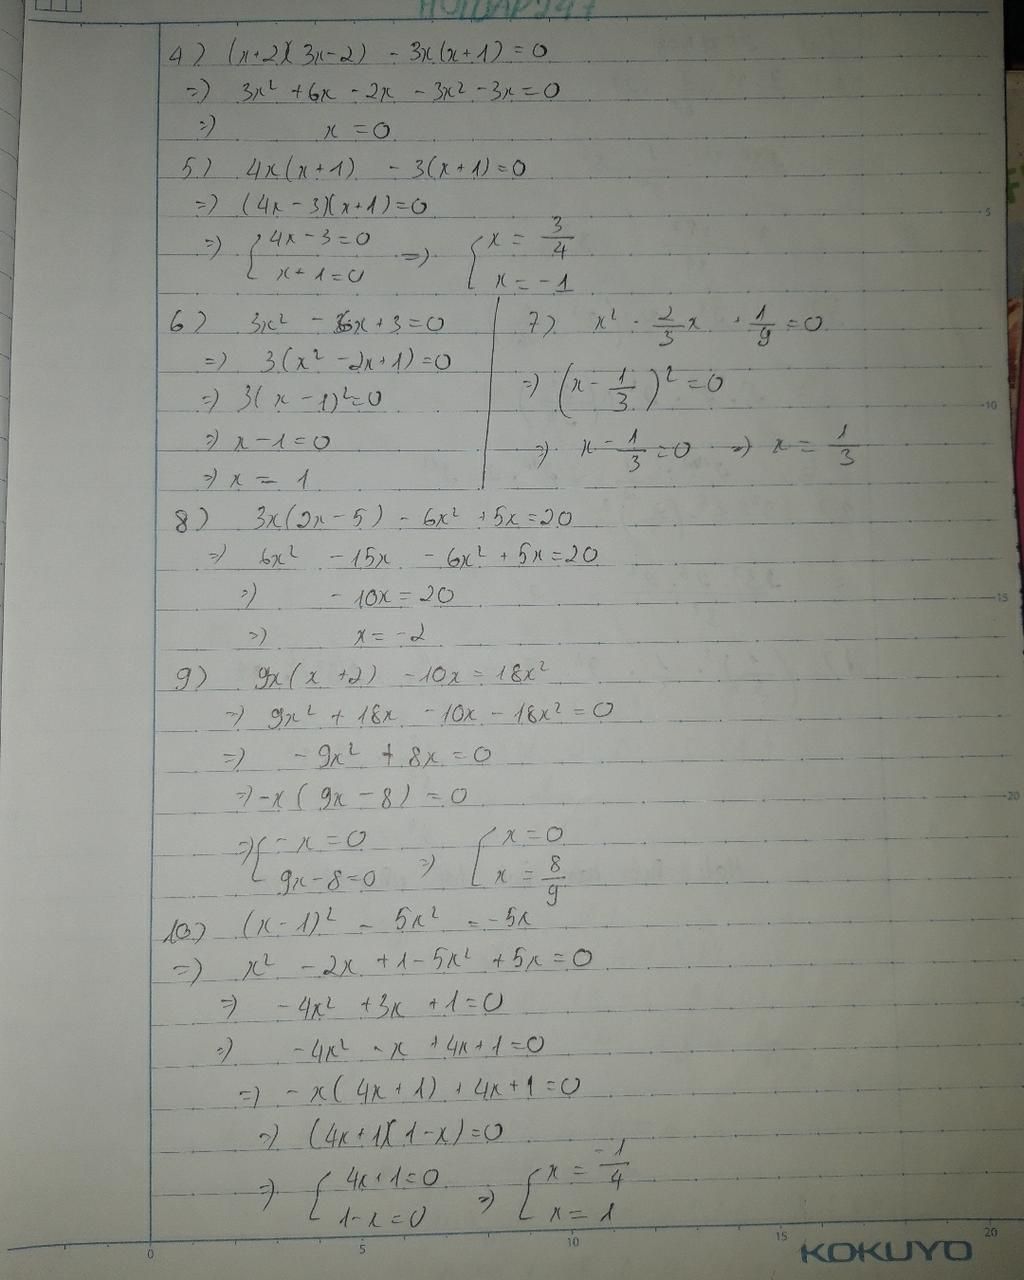 HOIDAP247
4) (x+2)(3x-2) - 3x(x+1) = 0
=) 3x² + 6x - 2x - 3x² - 3x = 0
=) x = 0
5) 4x(x+1) - 3(x+1) = 0
=) (4x-3)(x+1) = 0
=) { 4x-3=0 =) { x = 3/4
x+1=0 x = -1
6) 3x² - 6x + 3 = 0
=) 3(x² - 2x + 1) = 0
=) 3(x - 1)² = 0
=) x - 1 = 0
=) x = 1
7) x² - 2/3 x + 1/9 = 0
=) (x - 1/3)² = 0
=) x - 1/3 = 0 =) x = 1/3
8) 3x(2x-5) - 6x² + 5x = 20
=) 6x² - 15x - 6x² + 5x = 20
=) - 10x = 20
=) x = -2
9) 9x(x+2) - 10x = 18x²
=) 9x² + 18x - 10x - 18x² = 0
=) - 9x² + 8x = 0
=) -x(9x - 8) = 0
=) { -x = 0 =) { x = 0
9x-8=0 x = 8/9
10) (x-1)² - 5x² = -5x
=) x² - 2x + 1 - 5x² + 5x = 0
=) - 4x² + 3x + 1 = 0
=) - 4x² - x + 4x + 1 = 0
=) - x(4x+1) + 4x + 1 = 0
=) (4x+1)(1-x) = 0
=) { 4x+1=0 =) { x = -1/4
1-x=0 x = 1
KOKUYO
0 5 10 15 20
5
10
15
20